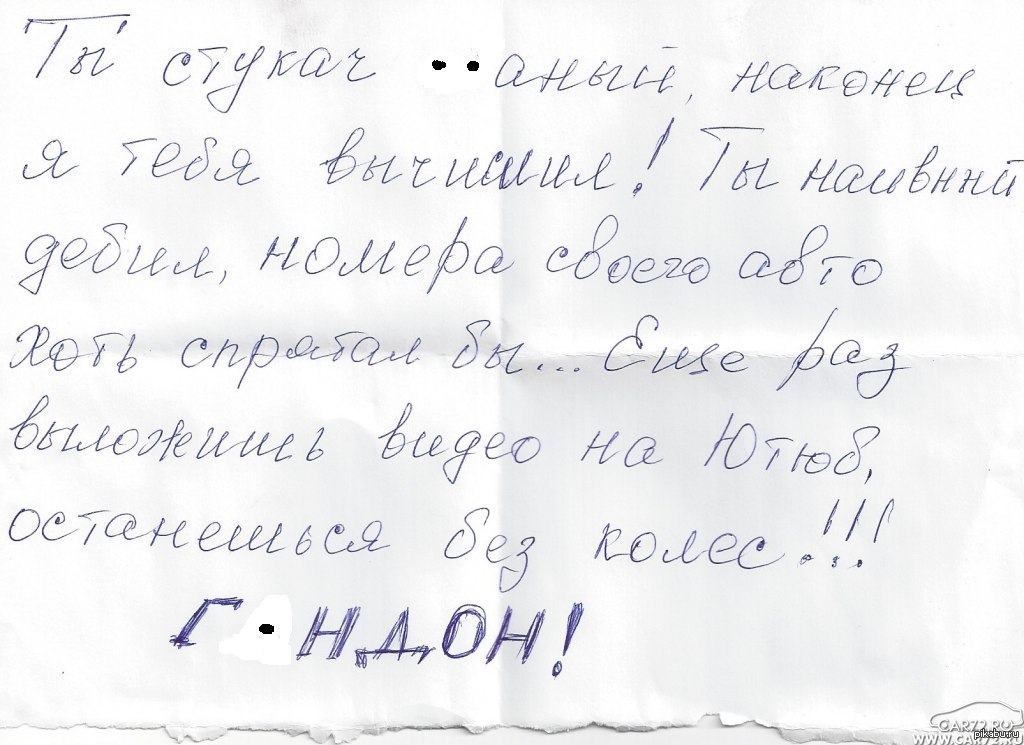 Ты стукач ••аный, наконец
я тебя вычислил! Ты наивный
дебил, номера своего авто
хоть спрятал бы... Еще раз
выложишь видео на Ютюб,
останешься без колес!!!
Г•НДОН!
CAR72.RU
pikabu.ru
WWW.CAR72.RU